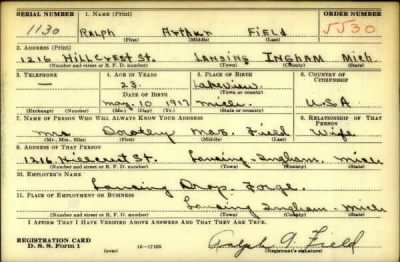 SERIAL NUMBER 1. NAME (Print) ORDER NUMBER
1130 RALPH ARTHUR FIELD 5530
(First) (Middle) (Last)
2. ADDRESS (Print)
1216 HILLCREST ST. LANSING INGHAM MICH.
(Number and street or R. F. D. number) (Town) (County) (State)
3. TELEPHONE 4. AGE IN YEARS 5. PLACE OF BIRTH 6. COUNTRY OF CITIZENSHIP
23 Lakeview
DATE OF BIRTH (Town or county)
May 10 1917 Mich. U.S.A
(Exchange) (Number) (Mo.) (Day) (Yr.) (State or country)
7. NAME OF PERSON WHO WILL ALWAYS KNOW YOUR ADDRESS 8. RELATIONSHIP OF THAT PERSON
Mrs. Dorothy Field Wife
(Mr., Mrs., Miss) (First) (Middle) (Last)
9. ADDRESS OF THAT PERSON
1216 Hillcrest St. Lansing Ingham. Mich
(Number and street or R. F. D. number) (Town) (County) (State)
10. EMPLOYER'S NAME
Lansing Drop Forge.
11. PLACE OF EMPLOYMENT OR BUSINESS
Lansing Ingham. Mich
(Number and street or R. F. D. number) (Town) (County) (State)
I AFFIRM THAT I HAVE VERIFIED ABOVE ANSWERS AND THAT THEY ARE TRUE.
REGISTRATION CARD
D. S. S. Form 1 16-17105 Ralph A. Field
(Registrant's signature)